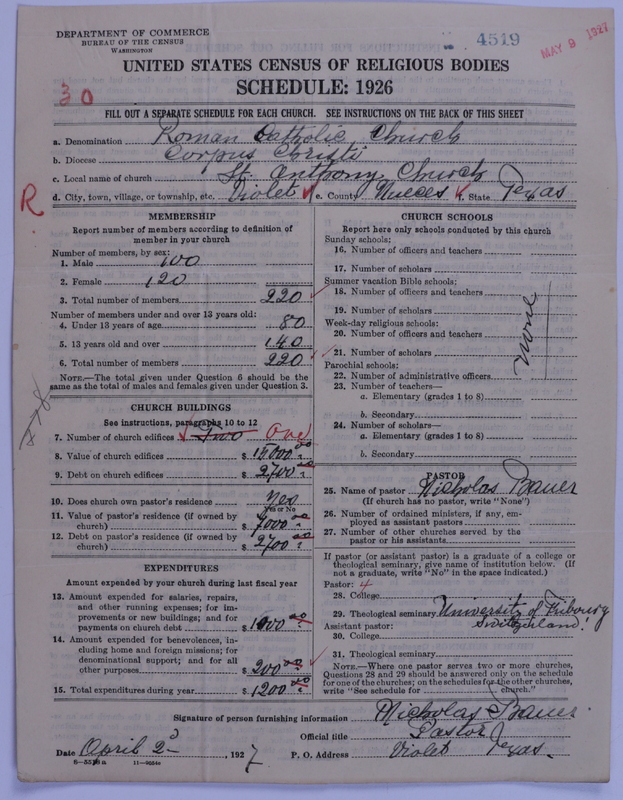 DEPARTMENT OF COMMERCE
BUREAU OF THE CENSUS
WASHINGTON
4519
MAY 9 1927
UNITED STATES CENSUS OF RELIGIOUS BODIES
SCHEDULE: 1926
30
FILL OUT A SEPARATE SCHEDULE FOR EACH CHURCH. SEE INSTRUCTIONS ON THE BACK OF THIS SHEET
a. Denomination Roman Catholic Church
b. Diocese Corpus Christi
c. Local name of church St. Anthony Church
R
d. City, town, village, or township, etc. Violet e. County Nueces f. State Texas
MEMBERSHIP
Report number of members according to definition of
member in your church
Number of members, by sex:
1. Male 100
2. Female 120
3. Total number of members 220
Number of members under and over 13 years old:
4. Under 13 years of age 80
5. 13 years old and over 140
6. Total number of members 220
NOTE.—The total given under Question 6 should be the
same as the total of males and females given under Question 3.
CHURCH BUILDINGS
See instructions, paragraphs 10 to 12
7. Number of church edifices Two One
8. Value of church edifices $ 15000 00
9. Debt on church edifices $ 2700
10. Does church own pastor's residence Yes
Yes or No
11. Value of pastor's residence (if owned by
church) $ 7000 00
12. Debt on pastor's residence (if owned by
church) $ 2700 00
EXPENDITURES
Amount expended by your church during last fiscal year
13. Amount expended for salaries, repairs,
and other running expenses; for im-
provements or new buildings; and for
payments on church debt $ 1000 00
14. Amount expended for benevolences, in-
cluding home and foreign missions; for
denominational support; and for all
other purposes $ 200 00
15. Total expenditures during year $ 1200 00
CHURCH SCHOOLS
Report here only schools conducted by this church
Sunday schools:
16. Number of officers and teachers
17. Number of scholars
Summer vacation Bible schools:
18. Number of officers and teachers
19. Number of scholars
Week-day religious schools:
20. Number of officers and teachers
21. Number of scholars
None
Parochial schools:
22. Number of administrative officers
23. Number of teachers—
a. Elementary (grades 1 to 8)
b. Secondary
24. Number of scholars—
a. Elementary (grades 1 to 8)
b. Secondary
PASTOR
25. Name of pastor Nicholas Bauer
(If church has no pastor, write "None")
26. Number of ordained ministers, if any, em-
ployed as assistant pastors
27. Number of other churches served by the
pastor or his assistants
If pastor (or assistant pastor) is a graduate of a college or
theological seminary, give name of institution below. (If
not a graduate, write "No" in the space indicated.)
Pastor: 4
28. College
29. Theological seminary University of Fribourg
Assistant pastor: Switzerland!
30. College
31. Theological seminary
NOTE.—Where one pastor serves two or more churches,
Questions 28 and 29 should be answered only on the schedule
for one of the churches; on the schedules for the other churches,
write "See schedule for church."
Signature of person furnishing information Nicholas Bauer
Official title Pastor
Date April 2, 1927 P. O. Address Violet Texas.
11—9654c